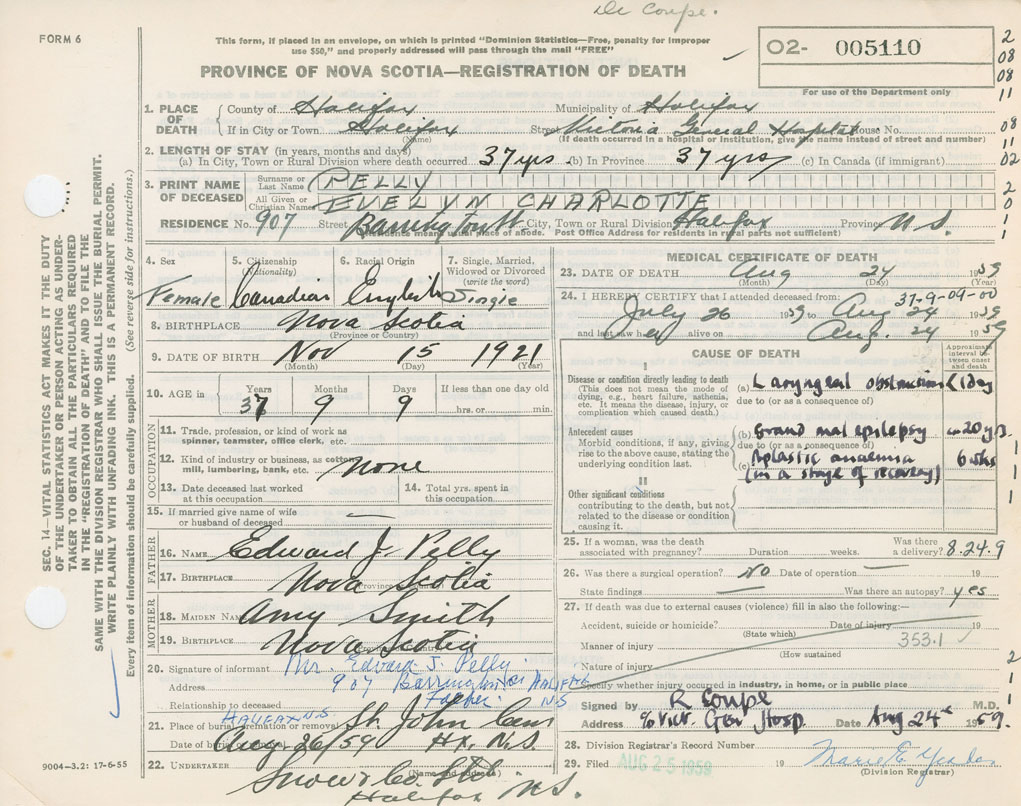 Dr Coupe.
FORM 6
This form, if placed in an envelope, on which is printed "Dominion Statistics—Free, penalty for improper
use $50," and properly addressed will pass through the mail "FREE"
O2- 005110
For use of the Department only
PROVINCE OF NOVA SCOTIA—REGISTRATION OF DEATH
2
08
08
11
08
11
02
2
0
1
1
1. PLACE OF DEATH County of Halifax Municipality of Halifax
If in City or Town Halifax Street Victoria General Hospital House No.
(Name) (If death occurred in a hospital or institution, give the name instead of street and number)
2. LENGTH OF STAY (in years, months and days)
(a) In City, Town or Rural Division where death occurred 37 yrs (b) In Province 37 yrs (c) In Canada (if immigrant)
3. PRINT NAME OF DECEASED
Surname or Last Name PELLY
All Given or Christian Names EVELYN CHARLOTTE
RESIDENCE No. 907 Street Barrington St City, Town or Rural Division Halifax Province N.S.
(Residence means usual place of abode. Post Office Address for residents in rural parts not sufficient)
4. Sex Female
5. Citizenship (Nationality) Canadian
6. Racial Origin English
7. Single, Married, Widowed or Divorced (write the word) Single
8. BIRTHPLACE Nova Scotia
(Province or Country)
9. DATE OF BIRTH Nov 15 1921
(Month) (Day) (Year)
10. AGE in Years Months Days If less than one day old
37 9 9 hrs. or min.
OCCUPATION
11. Trade, profession, or kind of work as
spinner, teamster, office clerk, etc.
12. Kind of industry or business, as cotton
mill, lumbering, bank, etc. None
13. Date deceased last worked
at this occupation
14. Total yrs. spent in
this occupation
15. If married give name of wife
or husband of deceased —
FATHER
16. NAME Edward J. Pelly
17. BIRTHPLACE Nova Scotia
MOTHER
18. MAIDEN NAME Amy Smith
19. BIRTHPLACE Nova Scotia
20. Signature of informant Mr. Edward J. Pelly
Address 907 Barrington St HALIFAX
Relationship to deceased Father NS
HALIFAX N.S.
21. Place of burial, cremation or removal St John Cem
Date of burial Aug 26/59 Hx. N.S.
22. UNDERTAKER Snow & Co. Ltd
(Name and address)
Halifax N.S.
9004-3.2: 17-6-55
MEDICAL CERTIFICATE OF DEATH
23. DATE OF DEATH Aug 24 1959
(Month) (Day) (Year)
37-9-09-00
24. I HEREBY CERTIFY that I attended deceased from:
July 26 1959 to Aug 24 1959
and last saw her alive on Aug. 24 1959
CAUSE OF DEATH
Approximate interval between onset and death
I
Disease or condition directly leading to death
(This does not mean the mode of
dying, e.g., heart failure, asthenia,
etc. It means the disease, injury, or
complication which caused death.)
(a) Laryngeal obstruction < 1 day
due to (or as a consequence of)
Antecedent causes
Morbid conditions, if any, giving
rise to the above cause, stating the
underlying condition last.
(b) Grand mal epilepsy 20 yrs.
due to (or as a consequence of)
(c) Aplastic anaemia 6 wks
(in a stage of recovery)
II
Other significant conditions
contributing to the death, but not
related to the disease or condition
causing it.
25. If a woman, was the death
associated with pregnancy? Duration weeks. Was there a delivery?
8.24.9
26. Was there a surgical operation? No Date of operation — 19
State findings — Was there an autopsy? yes
27. If death was due to external causes (violence) fill in also the following:—
Accident, suicide or homicide? Date of injury 19
(State which)
Manner of injury 353.1
(How sustained)
Nature of injury
Specify whether injury occurred in industry, in home, or in public place
Signed by R Coupe M.D.
Address c/o Vict. Gen Hosp. Date Aug 24th 1959.
28. Division Registrar's Record Number
29. Filed AUG 25 1959 19
(Division Registrar)
1
1
1
2
1
1
1
SEC. 14—VITAL STATISTICS ACT MAKES IT THE DUTY
OF THE UNDERTAKER OR PERSON ACTING AS UNDER-
TAKER TO OBTAIN ALL THE PARTICULARS REQUIRED
IN THE "REGISTRATION OF DEATH" AND TO FILE THE
SAME WITH THE DIVISION REGISTRAR WHO SHALL ISSUE THE BURIAL PERMIT.
WRITE PLAINLY WITH UNFADING INK. THIS IS A PERMANENT RECORD.
Every item of information should be carefully supplied. (See reverse side for instructions.)